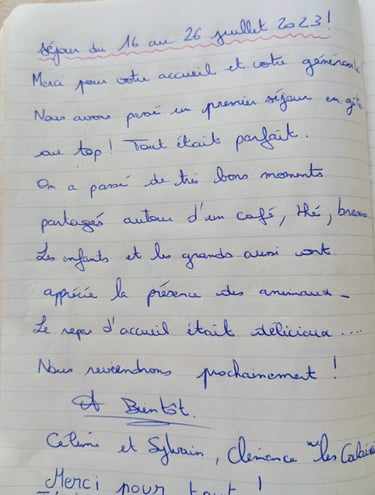 Séjour du 16 au 26 juillet 2023!
Merci pour votre accueil et votre générosité
Nous avons passé un premier séjour en gîte
au top! Tout était parfait.
On a passé de très bons moments
partagés autour d'un café, thé,
Les enfants et les grands aussi ont
appréciés la présence des animaux -
Le repas d'accueil était délicieux ....
Nous reviendrons prochainement !
A Bientôt.
et Sylvain, Clémence "les
Merci pour tout !